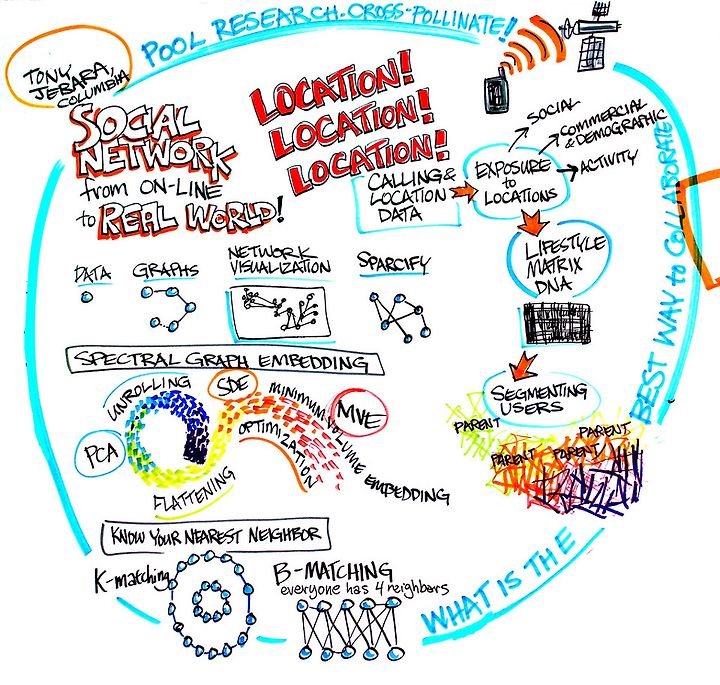 TONY
JEBARA,
COLUMBIA
POOL RESEARCH. CROSS-POLLINATE!
SOCIAL
NETWORK
from ON-LINE
to REAL WORLD!
LOCATION!
LOCATION!
LOCATION!
CALLING &
LOCATION
DATA
EXPOSURE
to
LOCATIONS
SOCIAL
COMMERCIAL
& DEMOGRAPHIC
ACTIVITY
LIFESTYLE
MATRIX
DNA
SEGMENTING
USERS
PARENT
PARENT
PARENT
PARENT
DATA
GRAPHS
NETWORK
VISUALIZATION
SPARCIFY
SPECTRAL GRAPH EMBEDDING
UNROLLING
PCA
FLATTENING
SDE
OPTIMIZATION
MINIMUM VOLUME EMBEDDING
MVE
KNOW YOUR NEAREST NEIGHBOR
K-matching
B-MATCHING
everyone has 4 neighbors
WHAT IS THE
BEST WAY to COLLABORATE